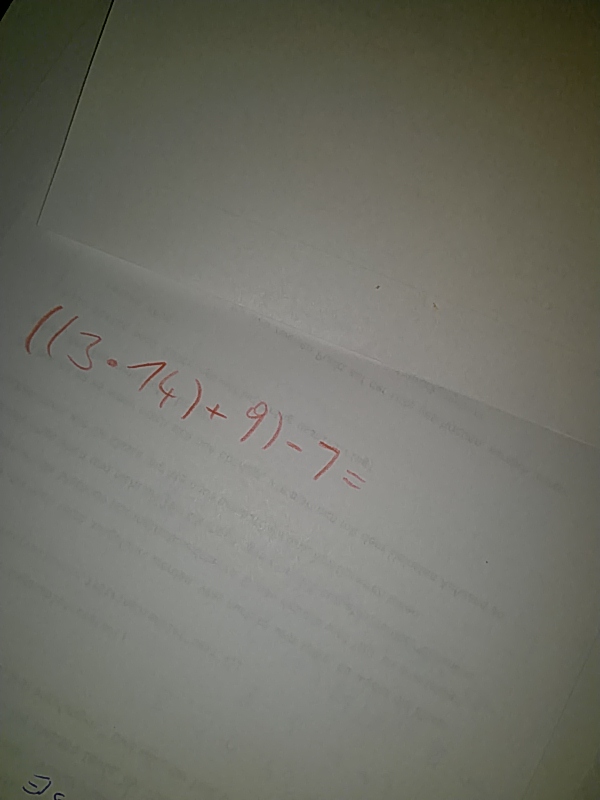 ((3·14)+9)-7=